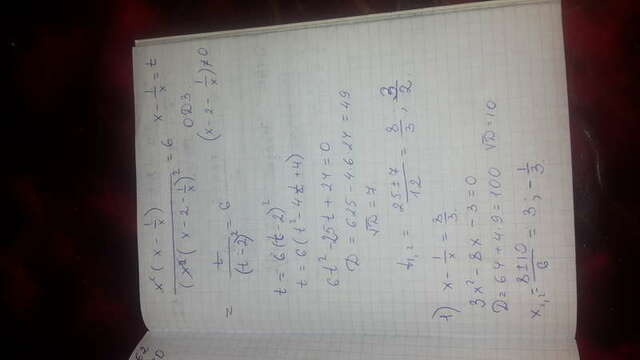 x²(x - 1/x) / (x²(x - 2 - 1/x)²) = 6    x - 1/x = t
ОДЗ
(x - 2 - 1/x) ≠ 0
t / (t - 2)² = 6
t = 6(t - 2)²
t = 6(t² - 4t + 4)
6t² - 25t + 24 = 0
D = 625 - 4·6·24 = 49
√D = 7
t₁,₂ = (25 ± 7) / 12 = 8/3 ; 3/2
1) x - 1/x = 8/3
3x² - 8x - 3 = 0
D = 64 + 4·9 = 100    √D = 10
x₁,₂ = (8 ± 10) / 6 = 3 ; -1/3